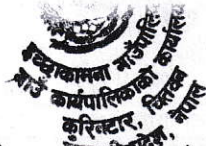 इच्छाकामना गाउँपालिका
गाउँ कार्यपालिकाको कार्यालय
कुरिनटार, चितवन
नेपाल